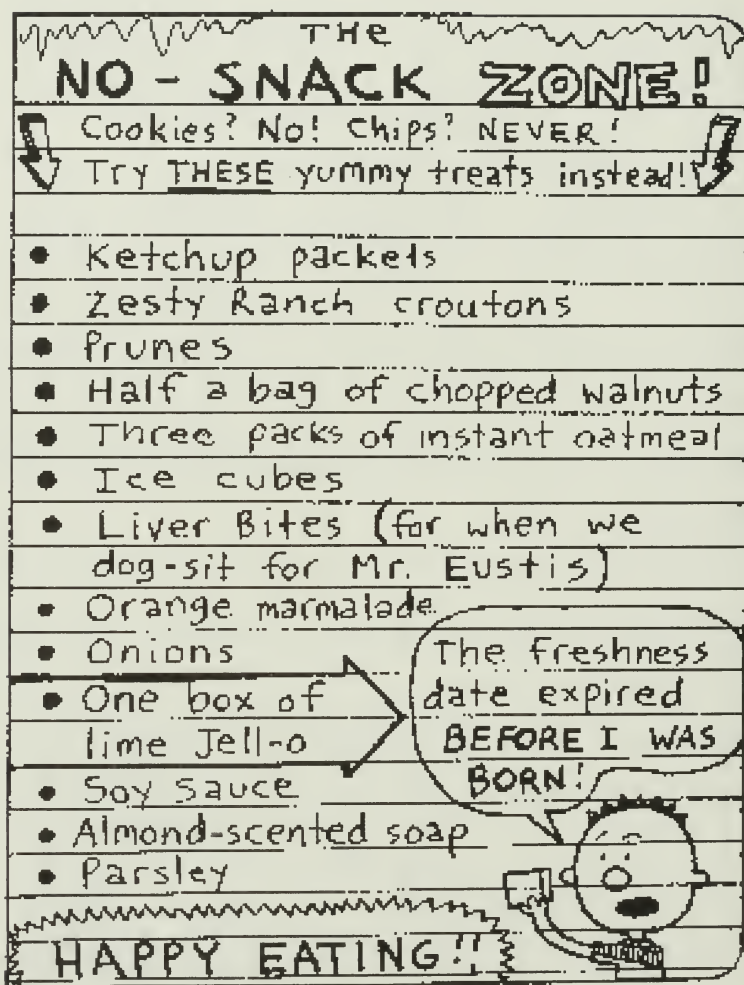 THE
NO - SNACK ZONE!
Cookies? No! Chips? NEVER!
Try THESE yummy treats instead!!
• Ketchup packets
• Zesty Ranch croutons
• Prunes
• Half a bag of chopped walnuts
• Three packs of instant oatmeal
• Ice cubes
• Liver Bites (for when we
dog-sit for Mr. Eustis)
• Orange marmalade
• Onions
• One box of
lime Jell-o
The freshness
date expired
BEFORE I WAS
BORN!
• Soy sauce
• Almond-scented soap
• Parsley
HAPPY EATING!!